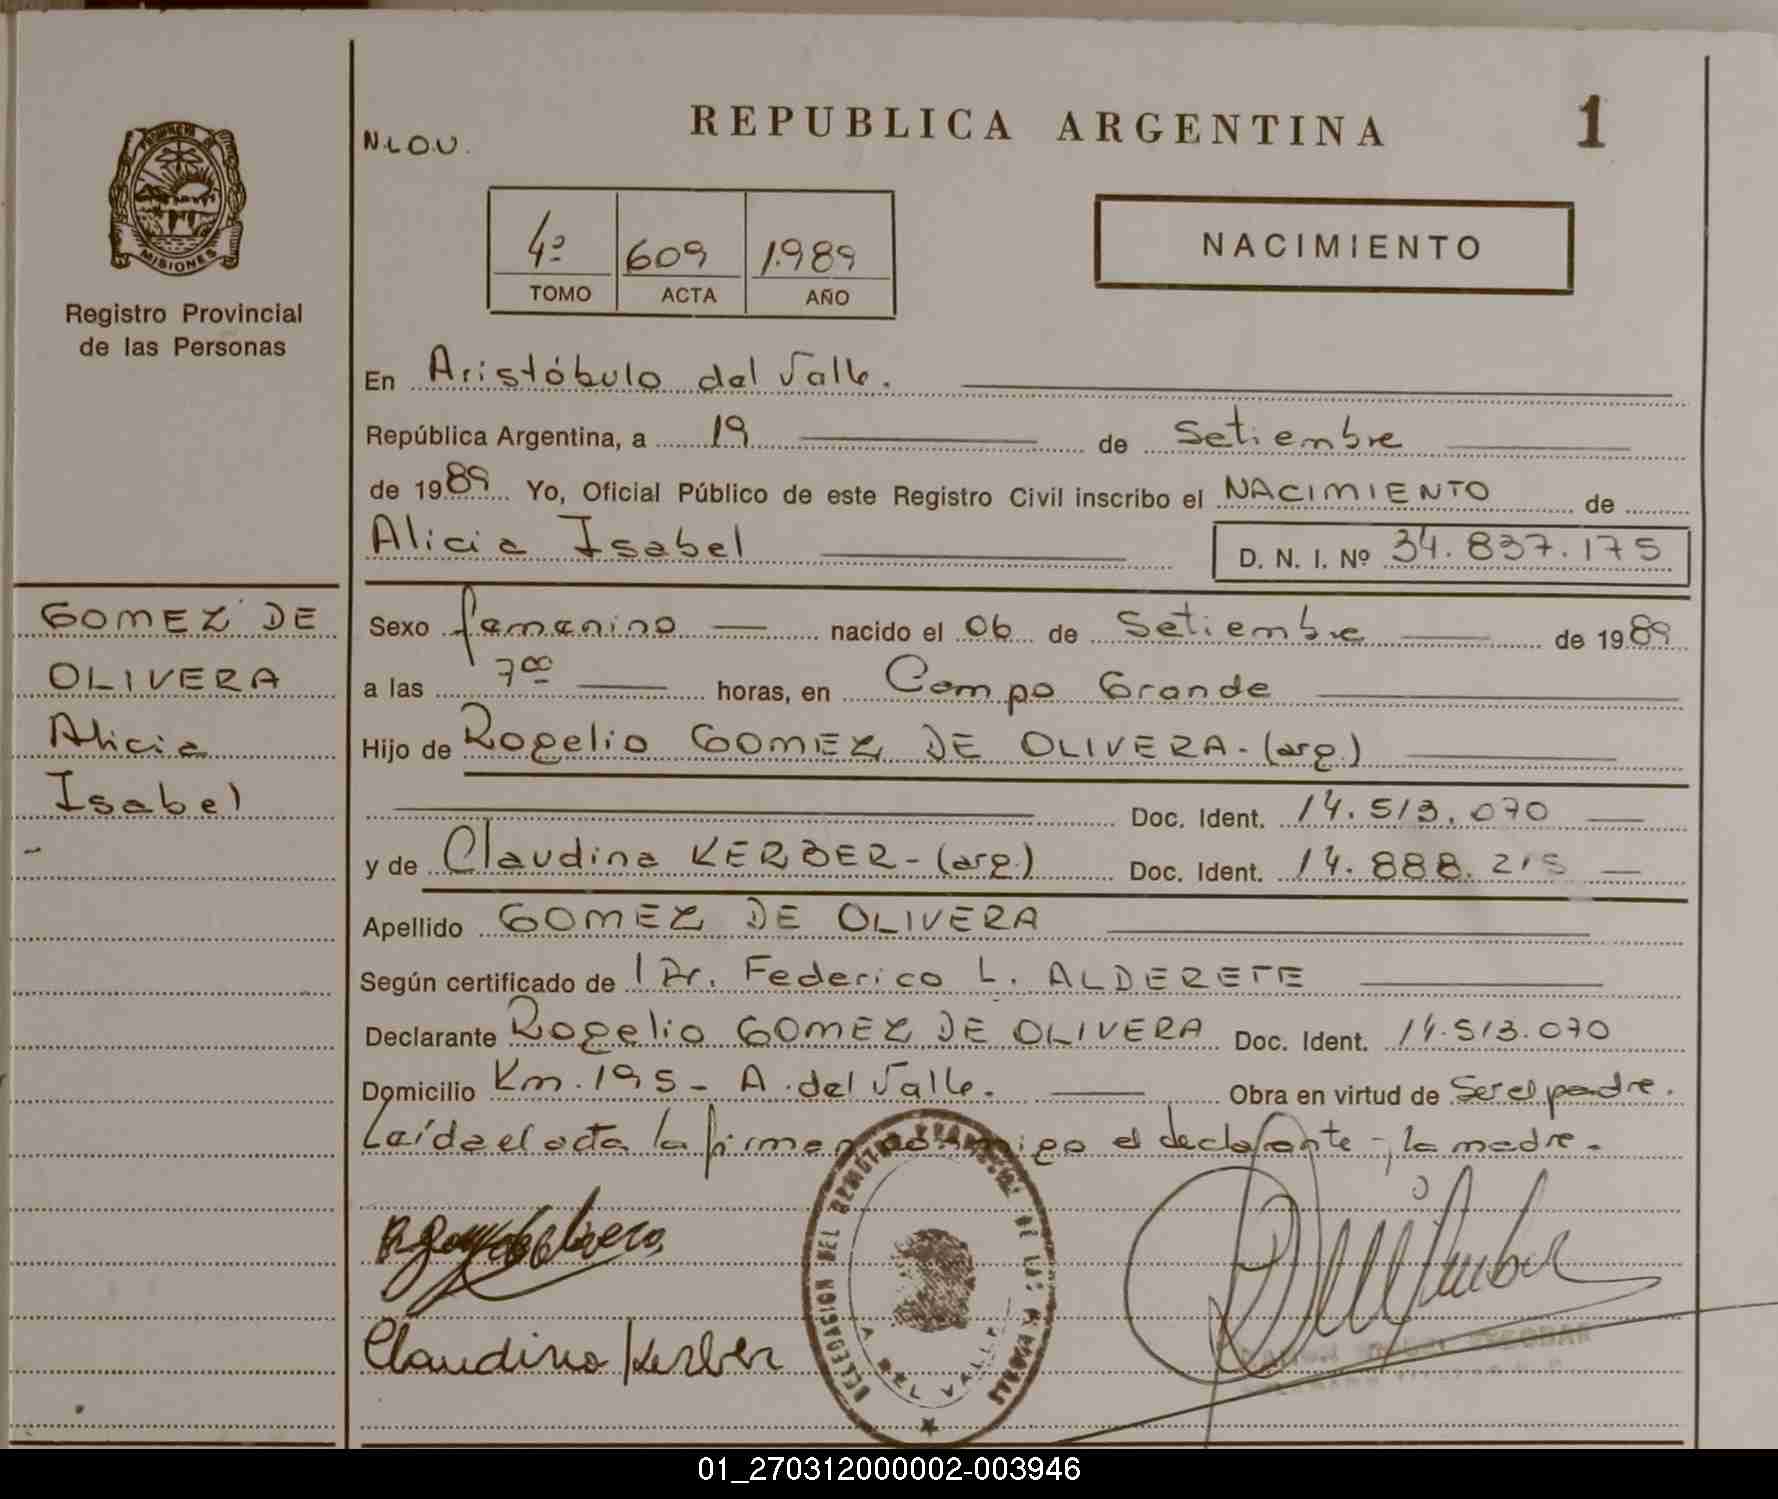 PROVINCIA DE MISIONES
Registro Provincial
de las Personas
GOMEZ DE
OLIVERA
Alicia
Isabel
N.L.O.U.
REPUBLICA ARGENTINA
1
4º 609 1.989
TOMO ACTA AÑO
NACIMIENTO
En Aristóbulo del Valle.
República Argentina, a 19 de Setiembre
de 1989 Yo, Oficial Público de este Registro Civil inscribo el NACIMIENTO de
Alicia Isabel D. N. I. Nº 34.837.175
Sexo femenino nacido el 06 de Setiembre de 1989
a las 7 00 horas, en Campo Grande
Hijo de Rogelio GOMEZ DE OLIVERA - (arg.)
Doc. Ident. 14.513.070
y de Claudina KERBER - (arg.) Doc. Ident. 14.888.215
Apellido GOMEZ DE OLIVERA
Según certificado de Dr. Federico L. ALDERETE
Declarante Rogelio GOMEZ DE OLIVERA Doc. Ident. 14.513.070
Domicilio Km. 195 - A. del Valle. Obra en virtud de Ser el padre.
Leída el acta la firman conmigo el declarante y la madre.
Claudina Kerber
DELEGACION DEL REGISTRO PROVINCIAL DE LAS PERSONAS
A. DEL VALLE
ESCOBAR
01_270312000002-003946